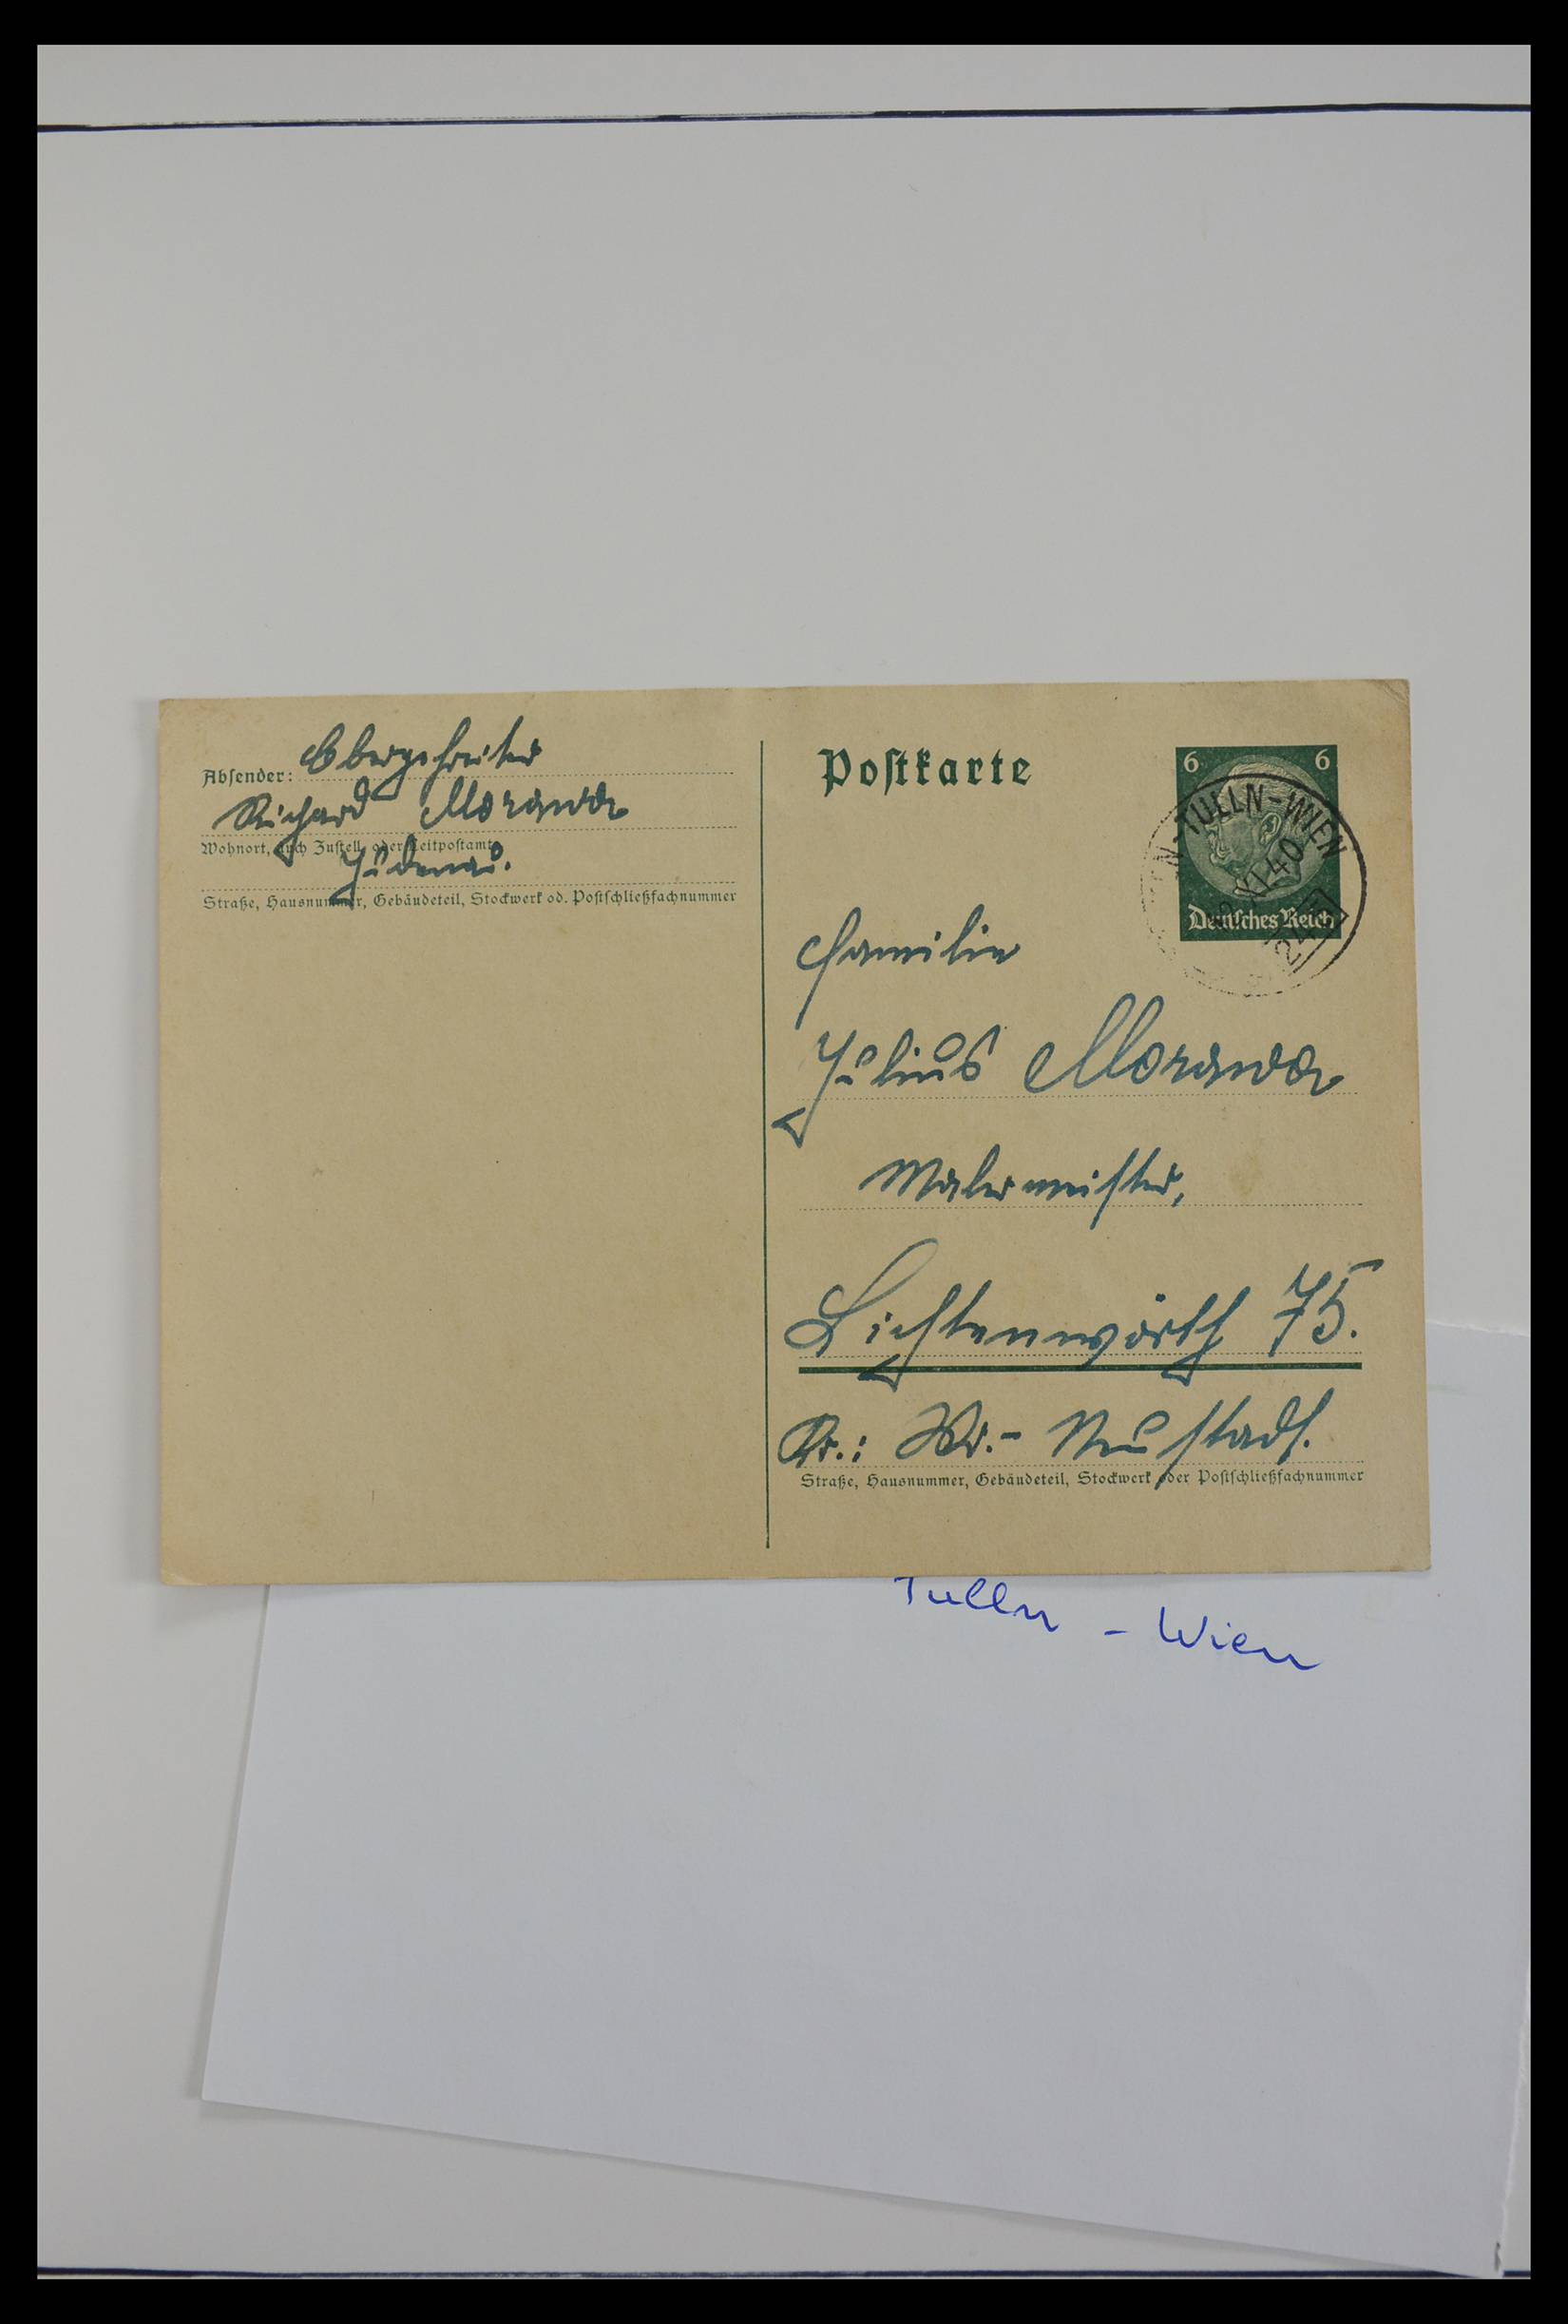 Absender: Obergefreiter
Richard Morawa
Wohnort, auch Zustell- oder Leitpostamt
Judenau.
Straße, Hausnummer, Gebäudeteil, Stockwerk od. Postschließfachnummer
Postkarte
6 6
N-TULLN-WIEN
XI 40
Deutsches Reich
Familie
Julius Morawa
Malermeister,
Lichtenwörth 75.
Kr.: Wr.- Neustadt.
Straße, Hausnummer, Gebäudeteil, Stockwerk oder Postschließfachnummer
Tulln - Wien